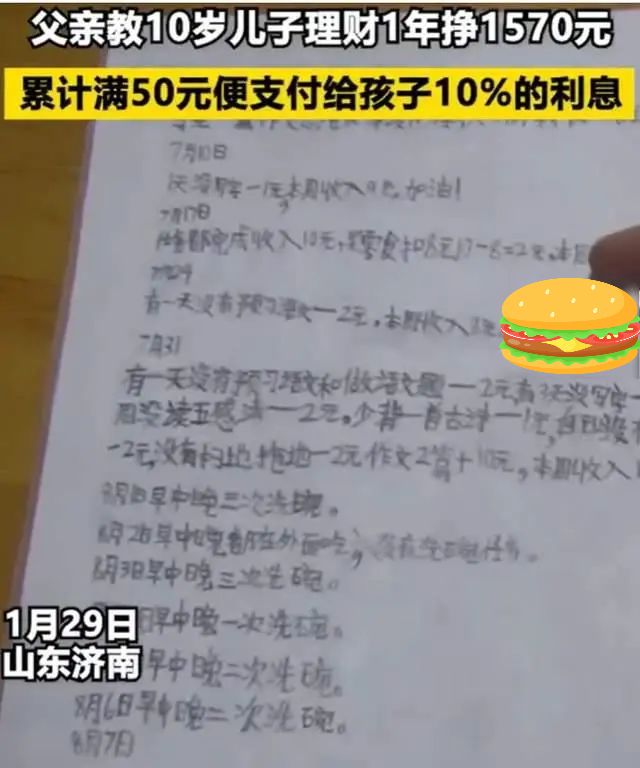 父亲教10岁儿子理财1年挣1570元
累计满50元便支付给孩子10%的利息
7月10日
一天没写字一1元,本期收入9元,加油!
7月17日
完成收入10元,买零食扣8元,17-8=2元,本
有一天没有预习语文一2元,本期收入8元
7月31
有一天没有预习语文和做语文题一2元,有3天没写字一
周没读五感法一2元。少背一首古诗一1元,
一2元,没有扫地拖地一2元作文2篇+10元,本期收入
8月1日早中晚三次洗碗。
8月2日早中晚都在外面吃,没有洗碗任务。
8月3日早中晚三次洗碗。
日早中晚一次洗碗。
早中晚二次洗碗。
8月6日早中晚二次洗碗。
8月7日
1月29日
山东济南